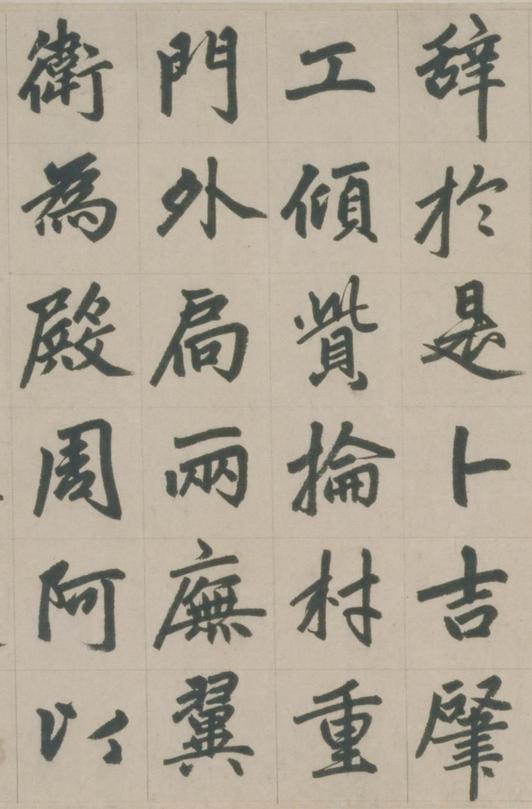 辭於是卜吉肇
工傾貲掄材重
門外扃兩廡翼
衛為殿周阿以